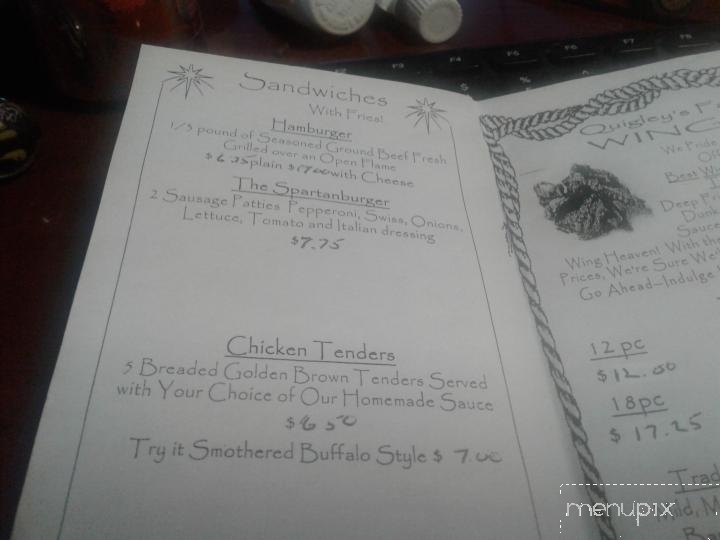 Sandwiches
With Fries!
Hamburger
1/3 pound of Seasoned Ground Beef Fresh
Grilled over an Open Flame
$6.25 plain $7.00 with Cheese
The Spartanburger
2 Sausage Patties Pepperoni, Swiss, Onions,
Lettuce, Tomato and Italian dressing
$7.75
Chicken Tenders
5 Breaded Golden Brown Tenders Served
with Your Choice of Our Homemade Sauce
$6.50
Try it Smothered Buffalo Style $ 7.00
Quigley's F
WING
We Pride
Of
Best W
Deep F
Dunk
Sauce
Wing Heaven! With th
Prices, We're Sure We'
Go Ahead-Indulge
12 pc
$12.00
18pc
$ 17.25
Trad
Mild, M
menupix
F3
F4
F5
F6
F7
F8
$
%